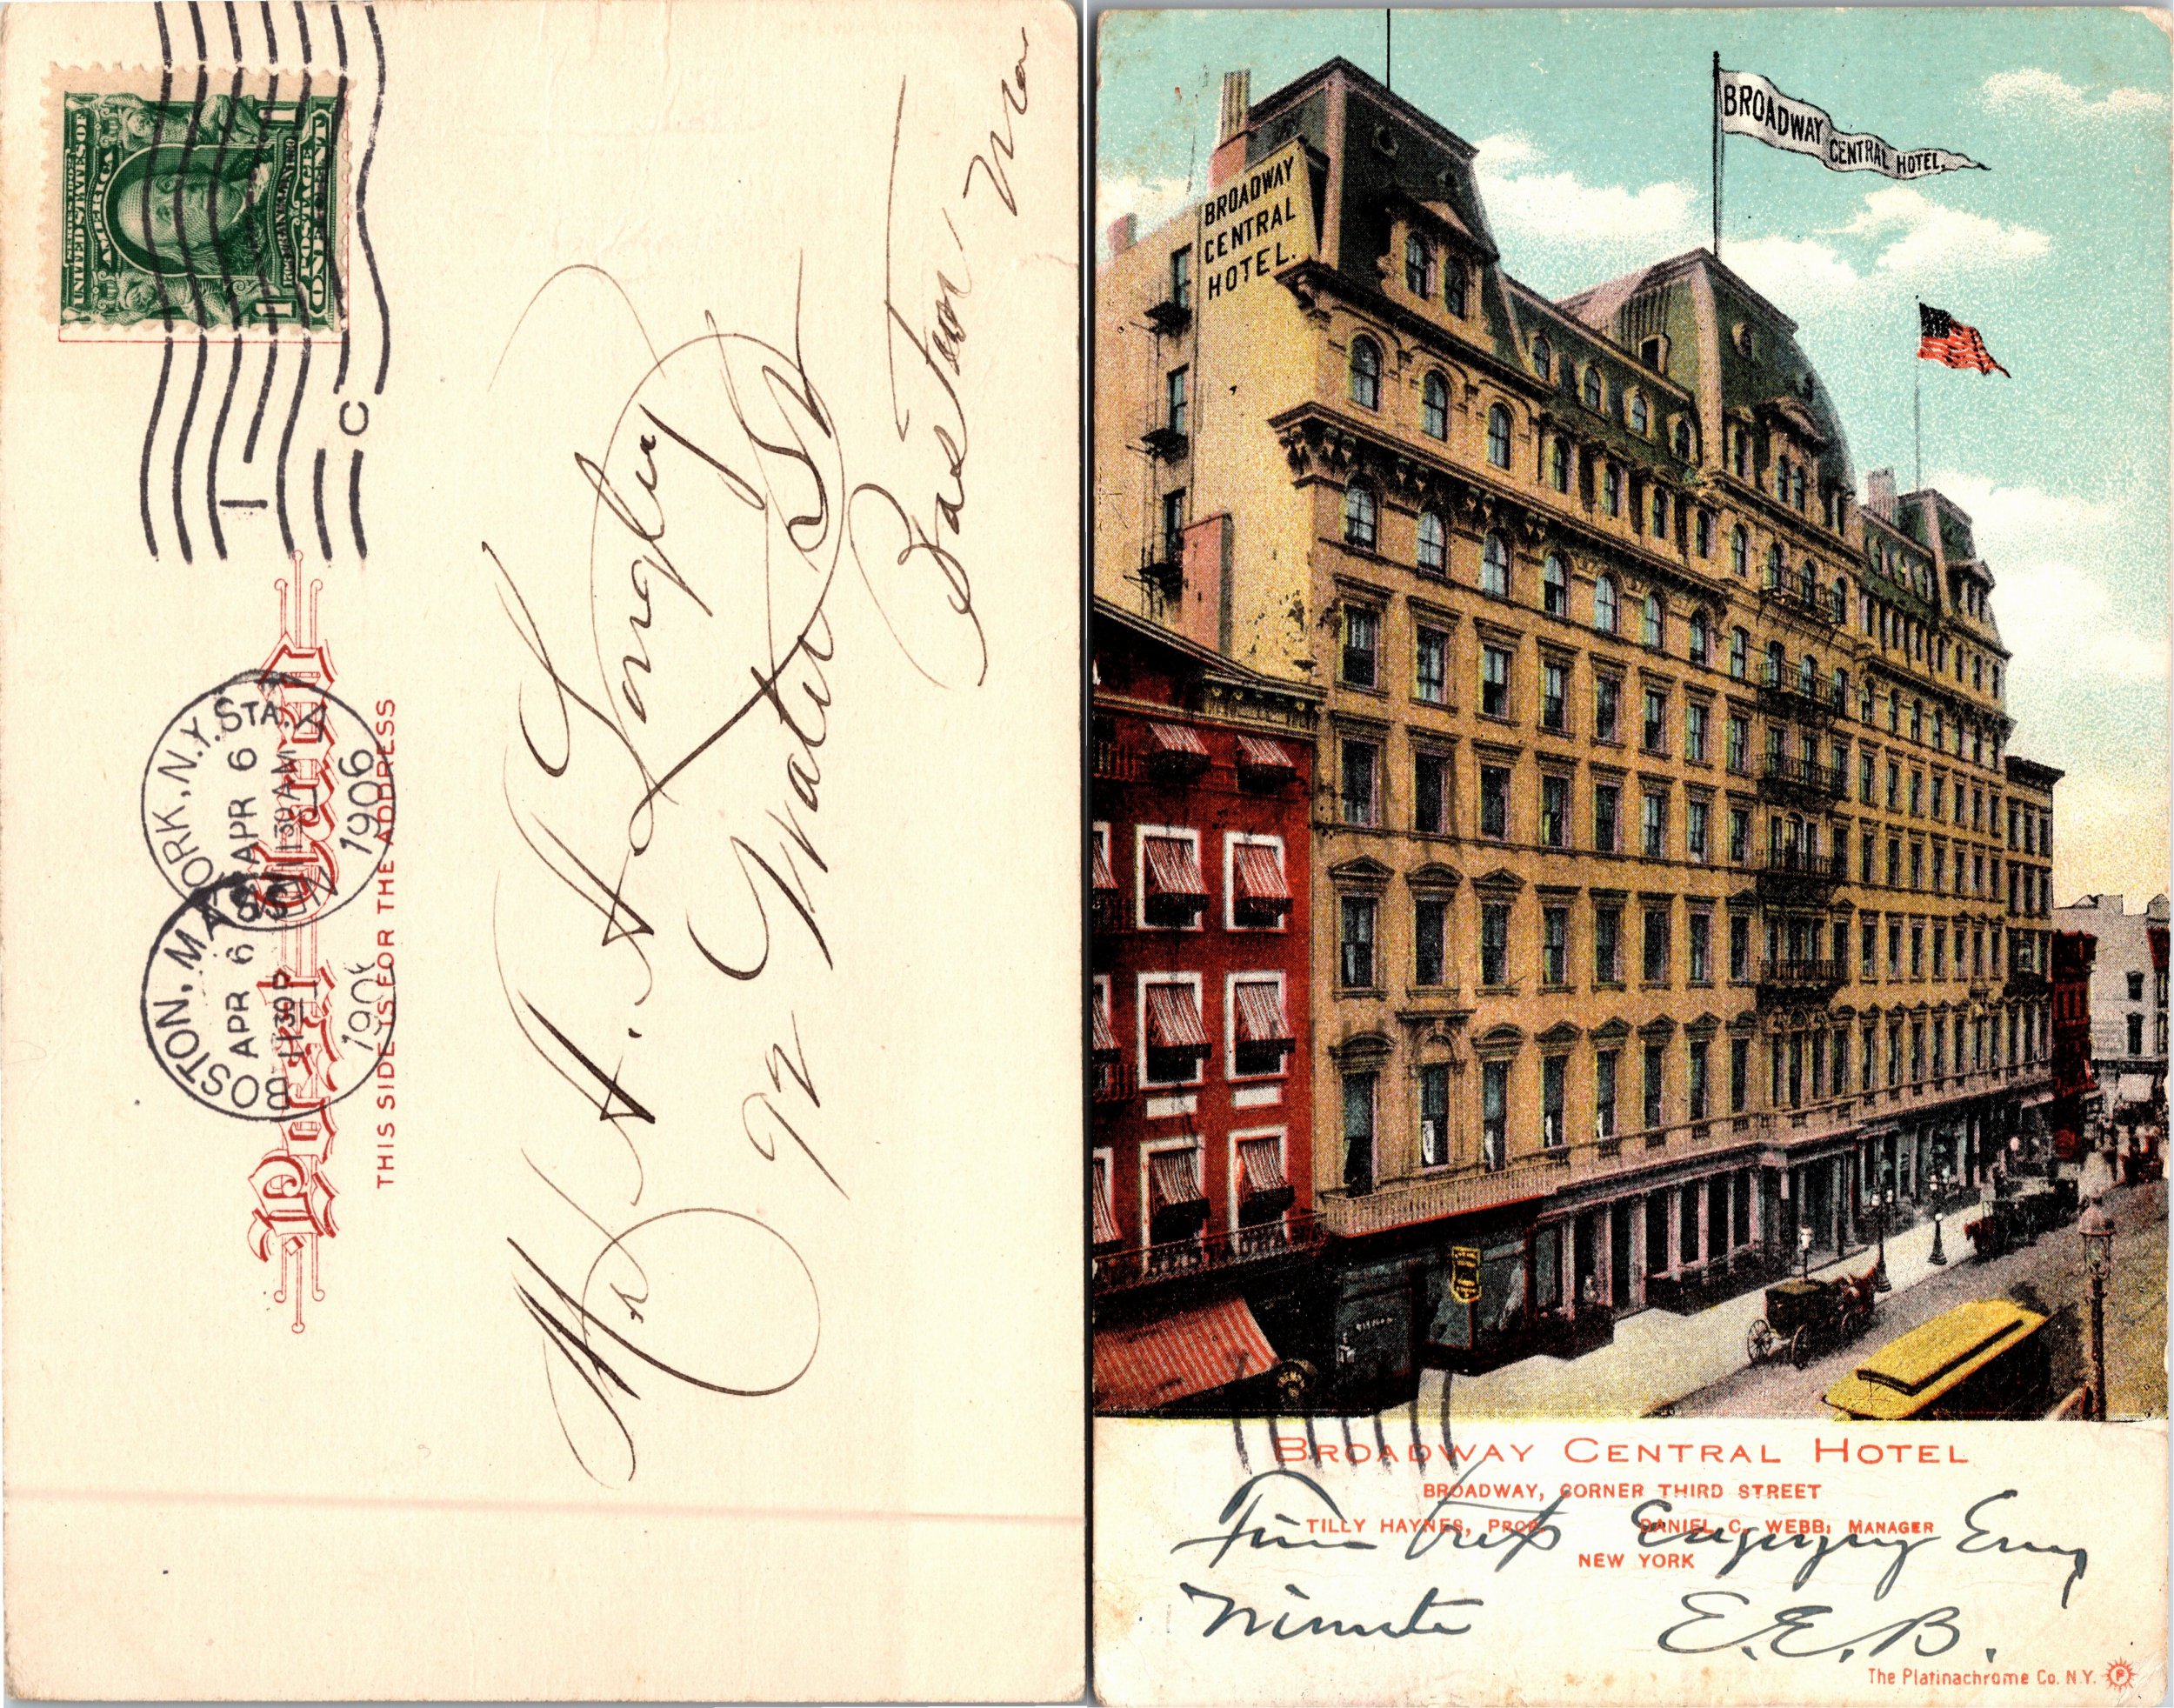 UNITED STATES OF
AMERICA
POSTAGE
ONE CENT
1
1
C
I
YORK, N.Y. STA. A
APR 6
1130 AM
1906
BOSTON, MASS
APR 6
1130 P
190
Postal Card
THIS SIDE IS FOR THE ADDRESS
Mr. H. H. Langley
92 Water St
Boston Ma
BROADWAY
CENTRAL
HOTEL.
BROADWAY CENTRAL HOTEL.
BROADWAY CENTRAL HOTEL
BROADWAY, CORNER THIRD STREET
TILLY HAYNES, PROP. DANIEL C. WEBB, MANAGER
NEW YORK
Fine trip Enjoying Every
Minute E.E.B.
The Platinachrome Co. N.Y. P